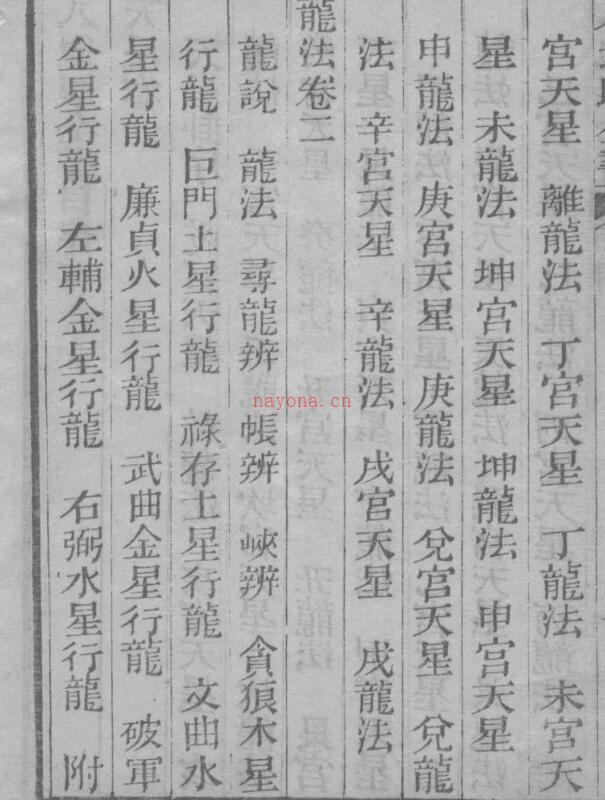 宮天星 離龍法 丁宮天星 丁龍法 未宮天
星 未龍法 坤宮天星 坤龍法 申宮天星
申龍法 庚宮天星 庚龍法 兌宮天星 兌龍
法 辛宮天星 辛龍法 戌宮天星 戌龍法
龍法卷二
龍說 龍法 尋龍辨 帳辨 峽辨 貪狼木星
行龍 巨門土星行龍 祿存土星行龍 文曲水
星行龍 廉貞火星行龍 武曲金星行龍 破軍
金星行龍 左輔金星行龍 右弼水星行龍 附
nayona.cn